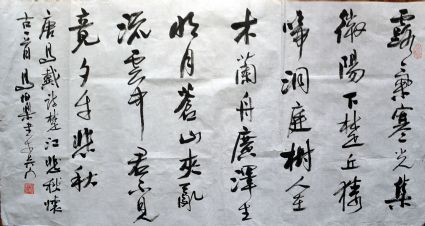 露氣寒光集
微陽下楚丘猿
啼洞庭樹人在
木蘭舟廣澤生
明月蒼山夾亂
流雲中君不見
竟夕自悲秋
唐馬戴詩楚江悲秋懷
古一首